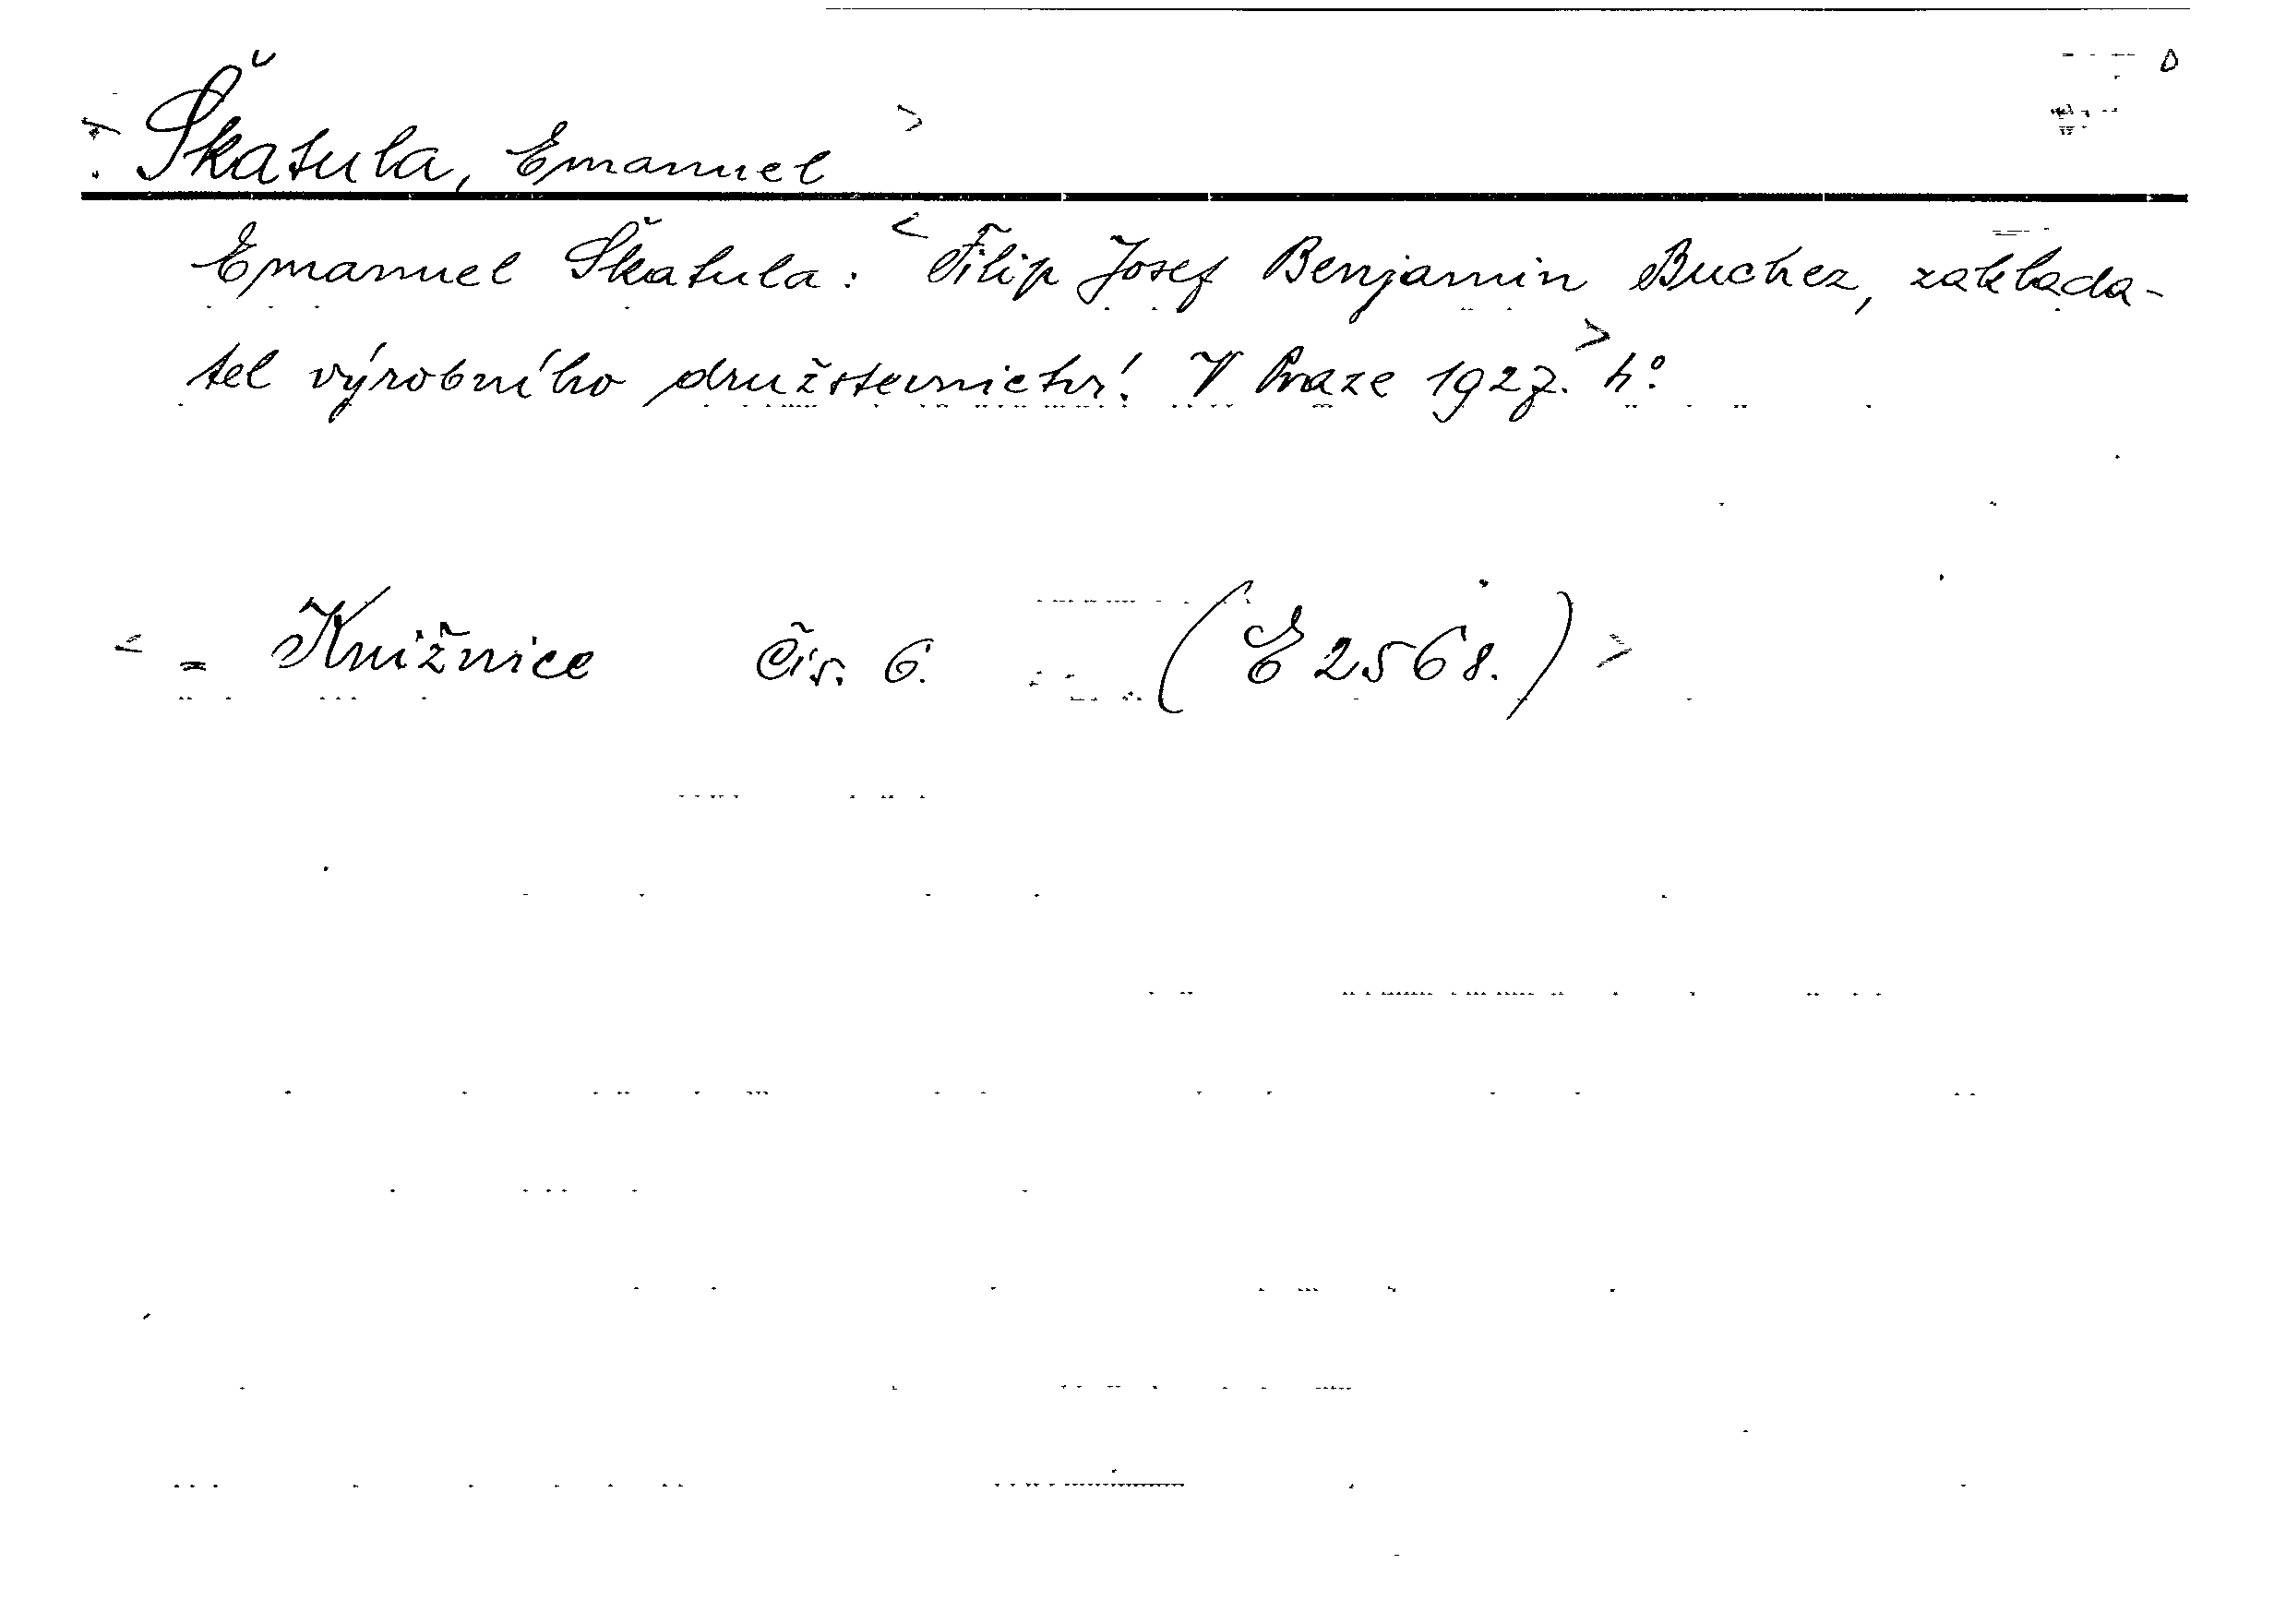 Škatula, Emanuel >
Emanuel Škatula: < Filip Josef Benjamin Buchez, zaklada-
tel výrobního družstevnictví. V Praze 1927. > 4°.
< = Knižnice čís. 6. (E 2568.) >